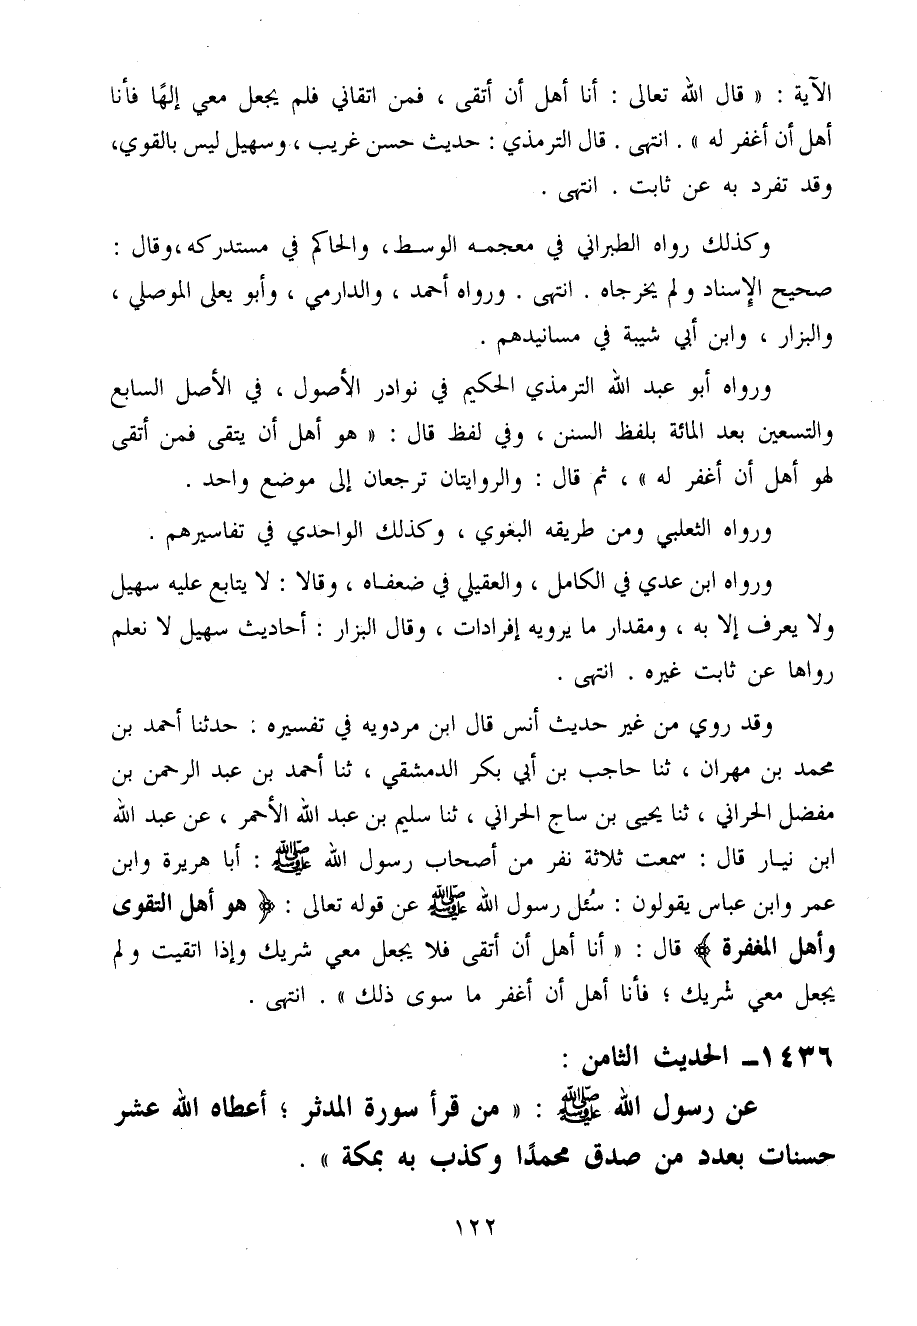 الآية : « قال الله تعالى : أنا أهل أن أتقى ، فمن اتقاني فلم يجعل معي إلهًا فأنا
أهل أن أغفر له » . انتهى . قال الترمذي : حديث حسن غريب ، وسهيل ليس بالقوي،
وقد تفرد به عن ثابت . انتهى .
وكذلك رواه الطبراني في معجمه الوسط، والحاكم في مستدركه،وقال :
صحيح الإسناد ولم يخرجاه . انتهى . ورواه أحمد ، والدارمي ، وأبو يعلى الموصلي ،
والبزار ، وابن أبي شيبة في مسانيدهم .
ورواه أبو عبد الله الترمذي الحكيم في نوادر الأصول ، في الأصل السابع
والتسعين بعد المائة بلفظ السنن ، وفي لفظ قال : « هو أهل أن يتقى فمن أتقى
لهو أهل أن أغفر له » ، ثم قال : والروايتان ترجعان إلى موضع واحد .
ورواه الثعلبي ومن طريقه البغوي ، وكذلك الواحدي في تفاسيرهم .
ورواه ابن عدي في الكامل ، والعقيلي في ضعفاه ، وقالا : لا يتابع عليه سهيل
ولا يعرف إلا به ، ومقدار ما يرويه إفرادات ، وقال البزار : أحاديث سهيل لا نعلم
رواها عن ثابت غيره . انتهى .
وقد روي من غير حديث أنس قال ابن مردويه في تفسيره : حدثنا أحمد بن
محمد بن مهران ، ثنا حاجب بن أبي بكر الدمشقي ، ثنا أحمد بن عبد الرحمن بن
مفضل الحراني ، ثنا يحيى بن ساج الحراني ، ثنا سليم بن عبد الله الأحمر ، عن عبد الله
ابن نيار قال : سمعت ثلاثة نفر من أصحاب رسول الله ﷺ : أبا هريرة وابن
عمر وابن عباس يقولون : سُئل رسول الله ﷺ عن قوله تعالى : ﴿ هو أهل التقوى
وأهل المغفرة ﴾ قال : « أنا أهل أن أتقى فلا يجعل معي شريك وإذا اتقيت ولم
يجعل معي شريك ؛ فأنا أهل أن أغفر ما سوى ذلك » . انتهى .
١٤٣٦ـ الحديث الثامن :
عن رسول الله ﷺ : « من قرأ سورة المدثر ؛ أعطاه الله عشر
حسنات بعدد من صدق محمدًا وكذب به بمكة » .
١٢٢